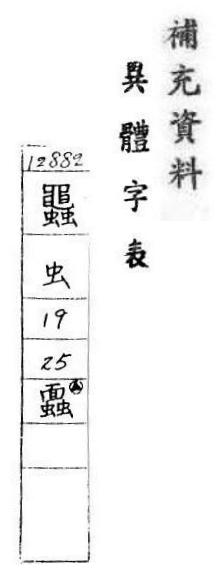 補充資料
異體字表
12882
虫
19
25